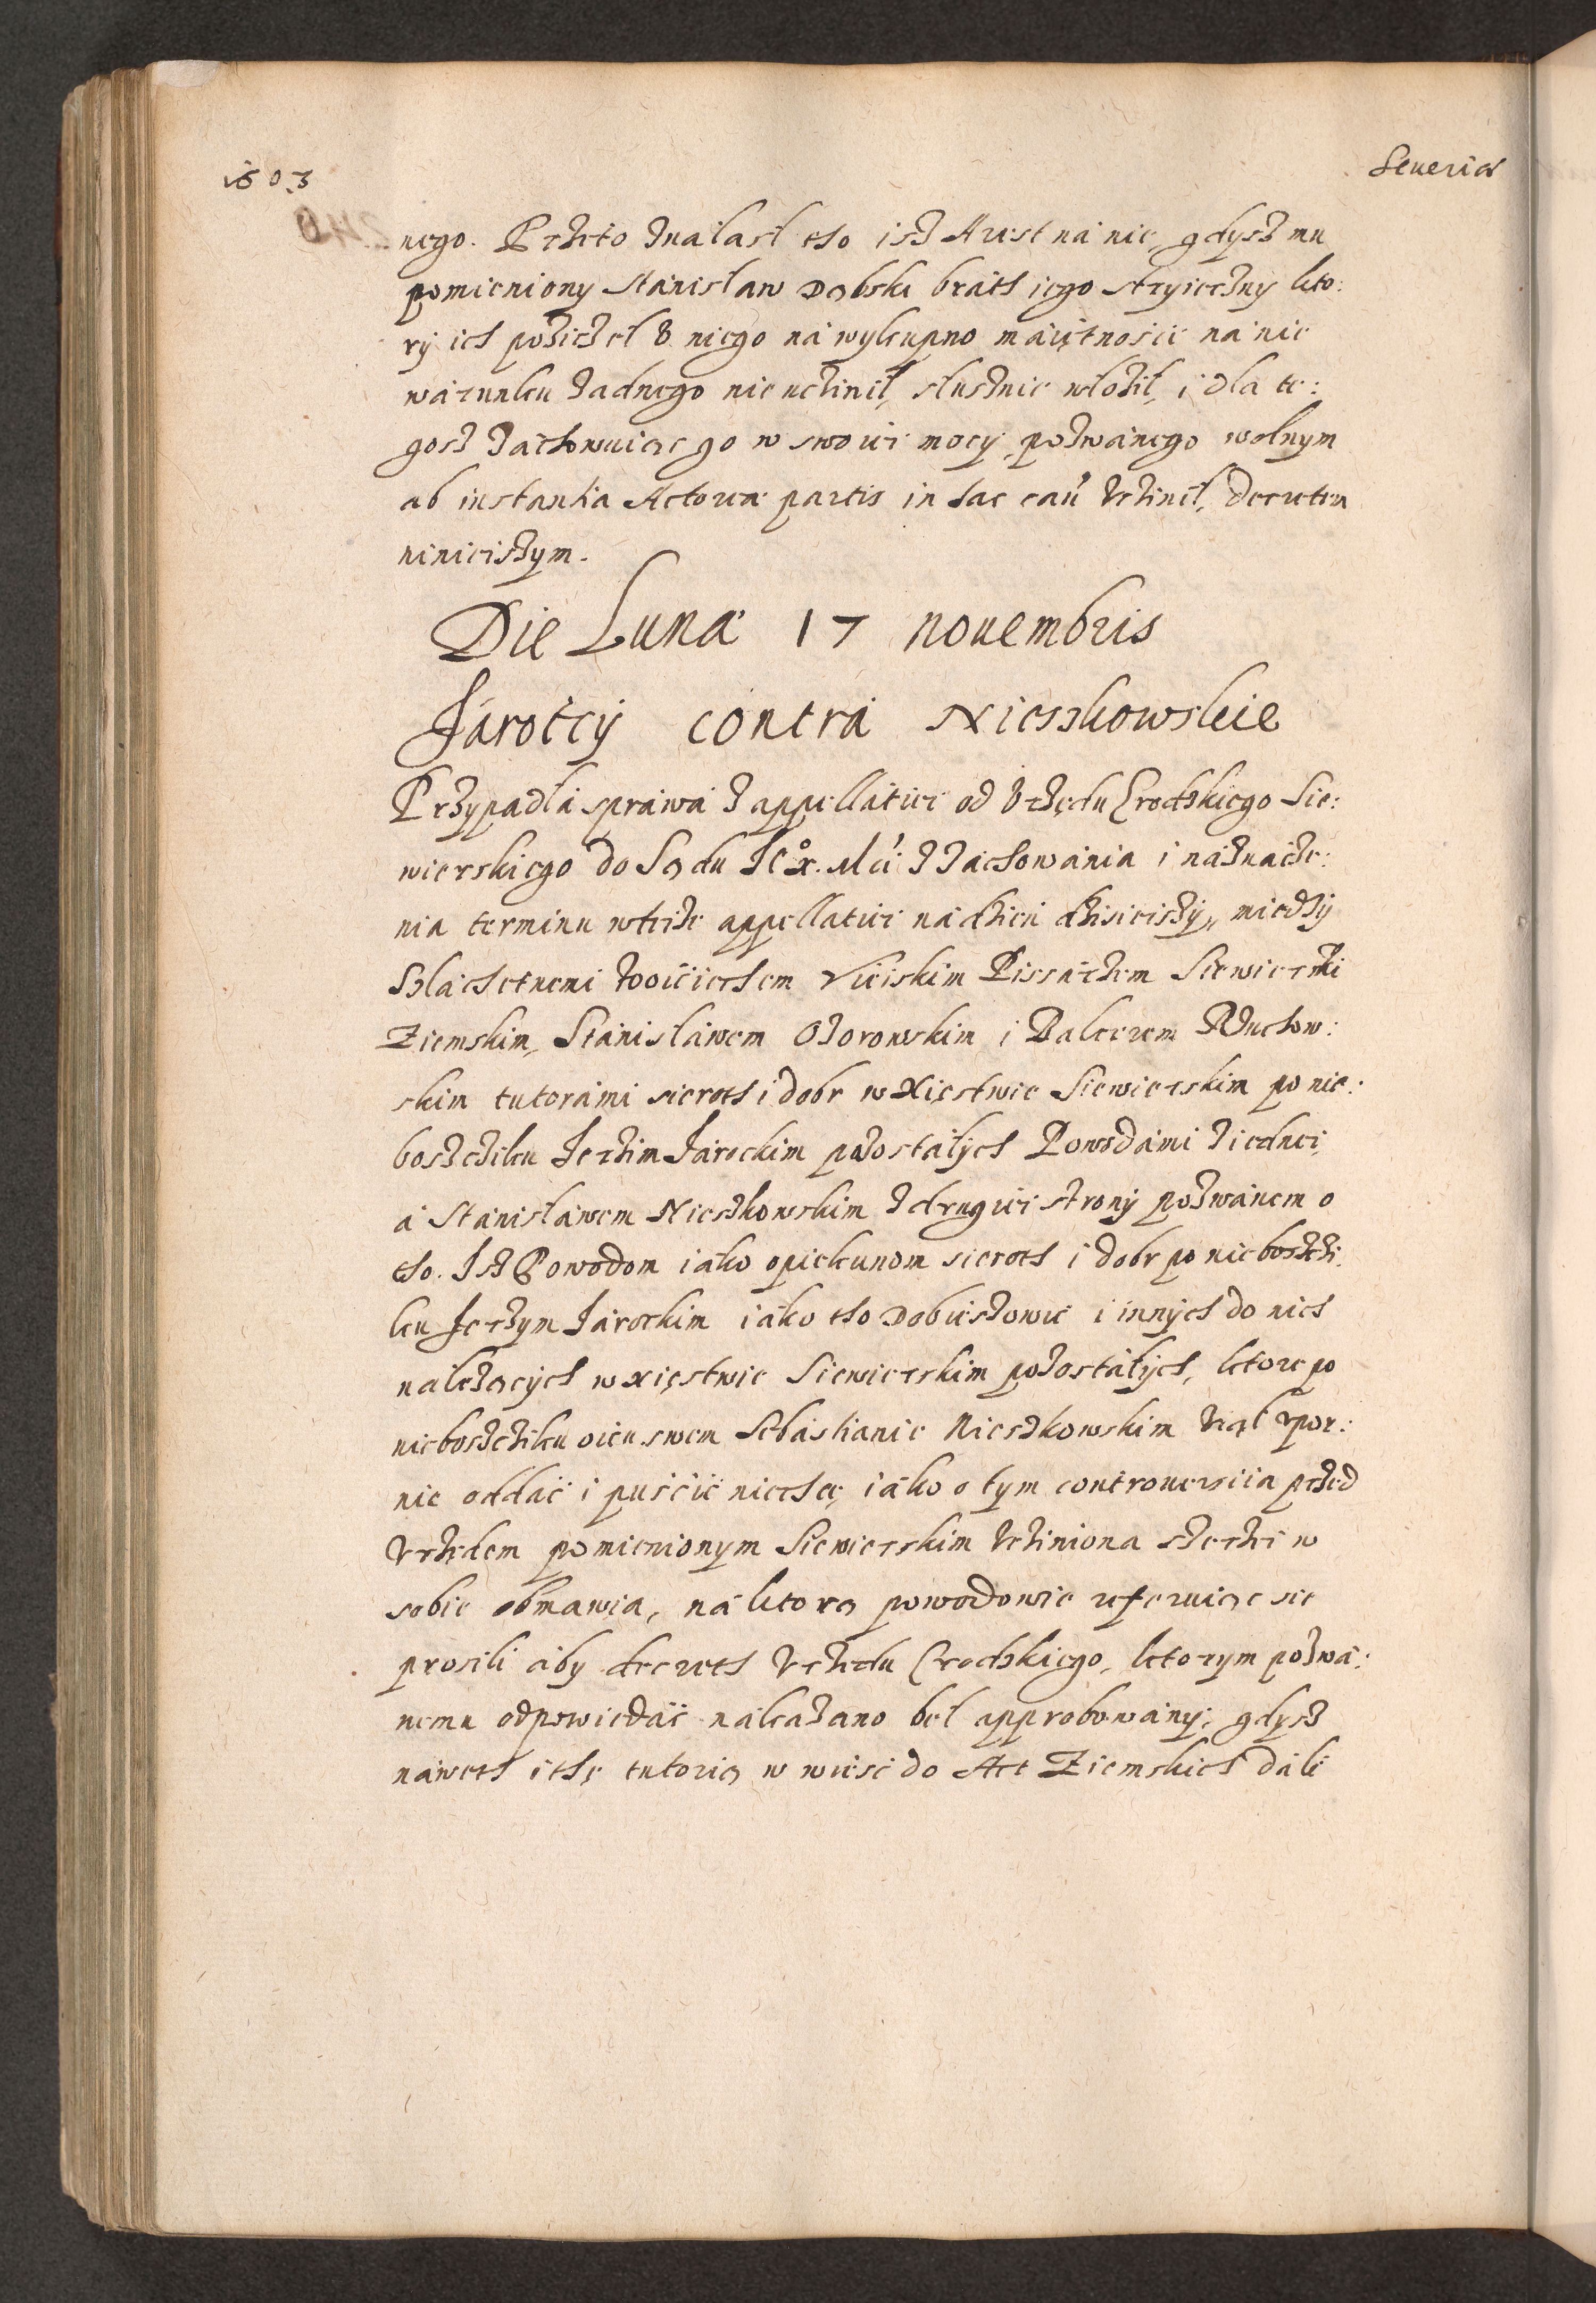 1603
Seueriæ
nego. Przeto znalasł tho isz Arest na nie, gdysz mu
pomieniony Stanisław Dąbski brath iego stryieczny kto:
ry ich pożiczeł v niego na wykupno maiętnoscі na nie
warunku żadnego nie uczinił, słusznie włożił, i dla te:
gosz zachowuiąc go w swoiei mocy, pozwanego wolnym
ab instantia Actoreæ partis in hac cau' vczinił, decretem
ninieiszym.
Die Lunæ 17 nouembris
Jaroccy contra Nieszkowskie
Przypadła sprawa z appellatiei od Vrzędu Grodzkiego Sie:
wierskiego do Sądu Je° X. Mci z zachowania i naznacze:
nia terminu w teize appellatiei na dzień dzisieiszy, miedzy
Szlachetnemi Woiciechem Vieiskim Pissarzem Siewierskim
Ziemskim, Stanisławem Ożorowskim i Balcerem Rzuchow:
skim tutorami sieroth i dobr w Xięstwie Siewierskim po nie:
boszcziku Jerzim Jarockim pozostałych Powodami z iednei,
a Stanisławem Nieszkowskim z drugiei strony pozwanem o
tho. Isz Powodom iako opiekunom sieroth i dobr po nieboszczi:
ku Jerzym Jarockim iako tho Dobieszowic i innych do nich
należących w xięstwie Siewierskim pozostałych, ktore po
nieboszcziku oicu swem Sebastianie Nieszkowskim wziął vpor:
nie oddać i puścić niechce, iako o tym controuersiia przed
Vrzedem pomienionym Siewierskim vcziniona szerzei w
sobie obmawia, na ktorą powodowie referuiąc sie
prosili aby decreth Vrzedu Grodzkiego, ktorym pozwa:
nemu odpowiedać nakazano beł approbowany, gdysz
naweth i thę tutorią w wieść do Act Ziemskich dali